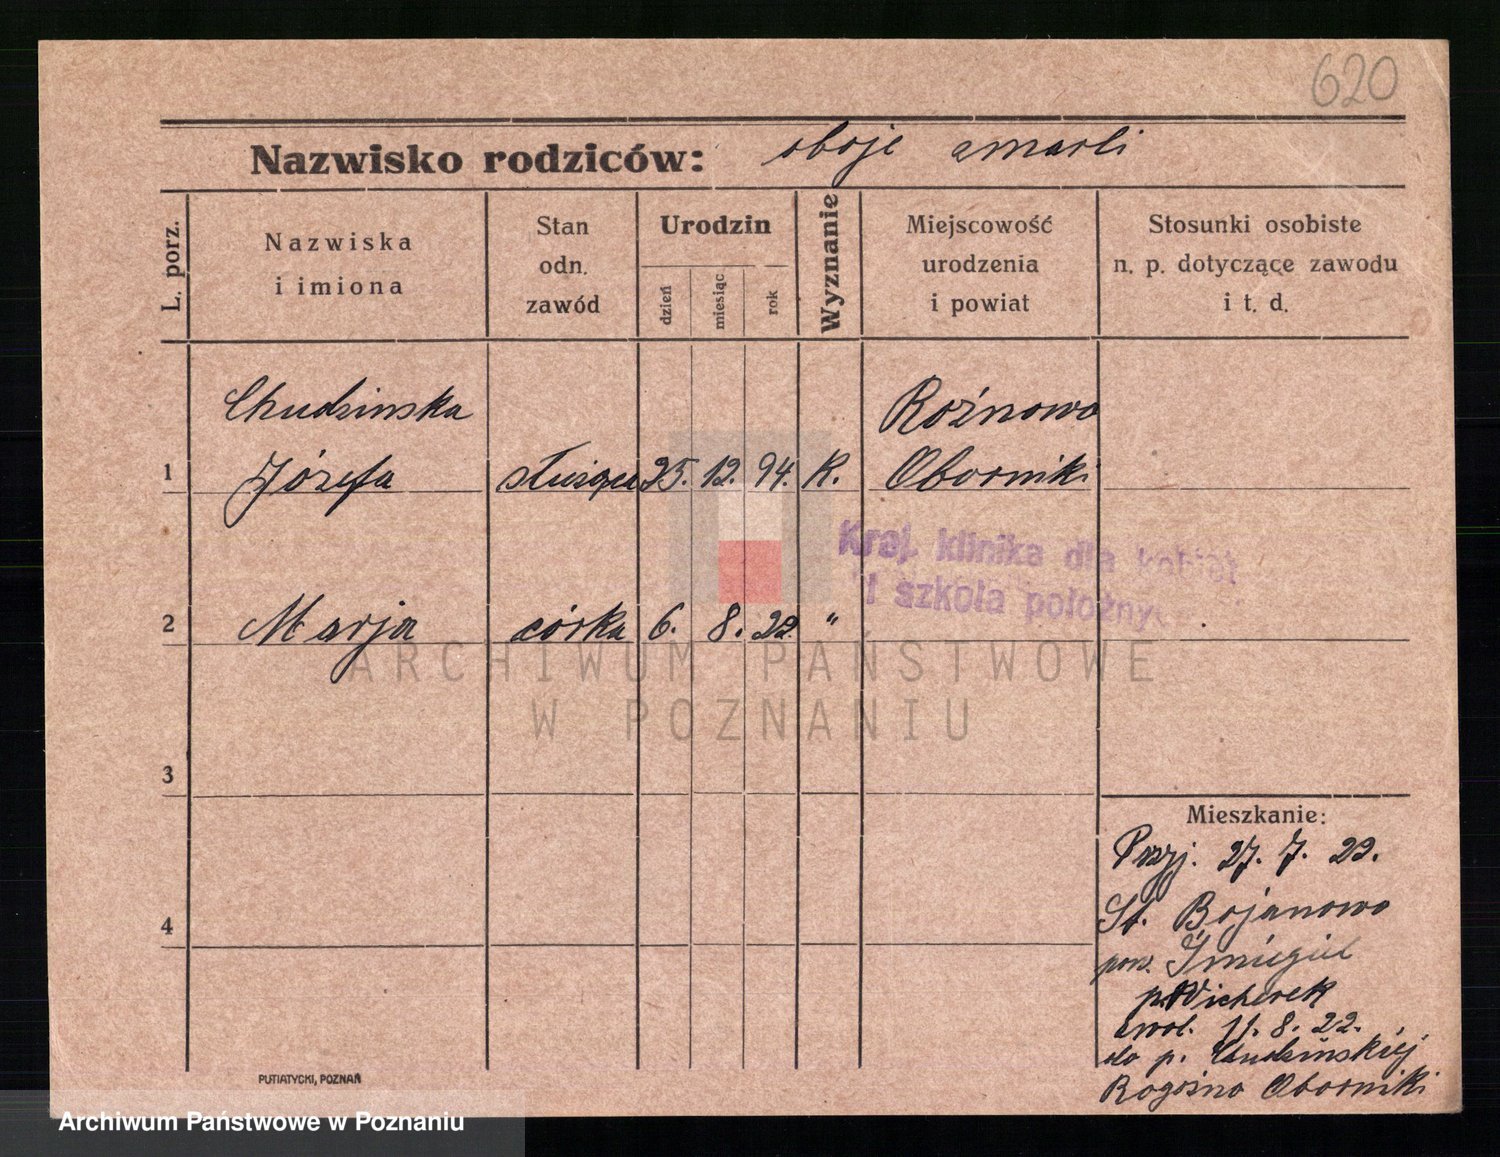 620
Nazwisko rodziców: oboje zmarli
L. porz.
Nazwiska
i imiona
Stan
odn.
zawód
Urodzin
dzień
miesiąc
rok
Wyznanie
Miejscowość
urodzenia
i powiat
Stosunki osobiste
n. p. dotyczące zawodu
i t. d.
Chudzinska Rożnowo
1 Józefa służąca 25. 12. 94. K. Oborniki
Kraj. klinika dla kobiet
i szkoła położny
2 Marja córka 6. 8. 22 "
ARCHIWUM PAŃSTWOWE
W POZNANIU
3
Mieszkanie:
Przyj. 27. 7. 22.
4 St. Bojanowo
pow. Śmigiel
p. Wicherek
zwol. 11. 8. 22.
do p. Chudzińskiej
Rogoźno Oborniki
PUTIATYCKI, POZNAŃ
Archiwum Państwowe w Poznaniu